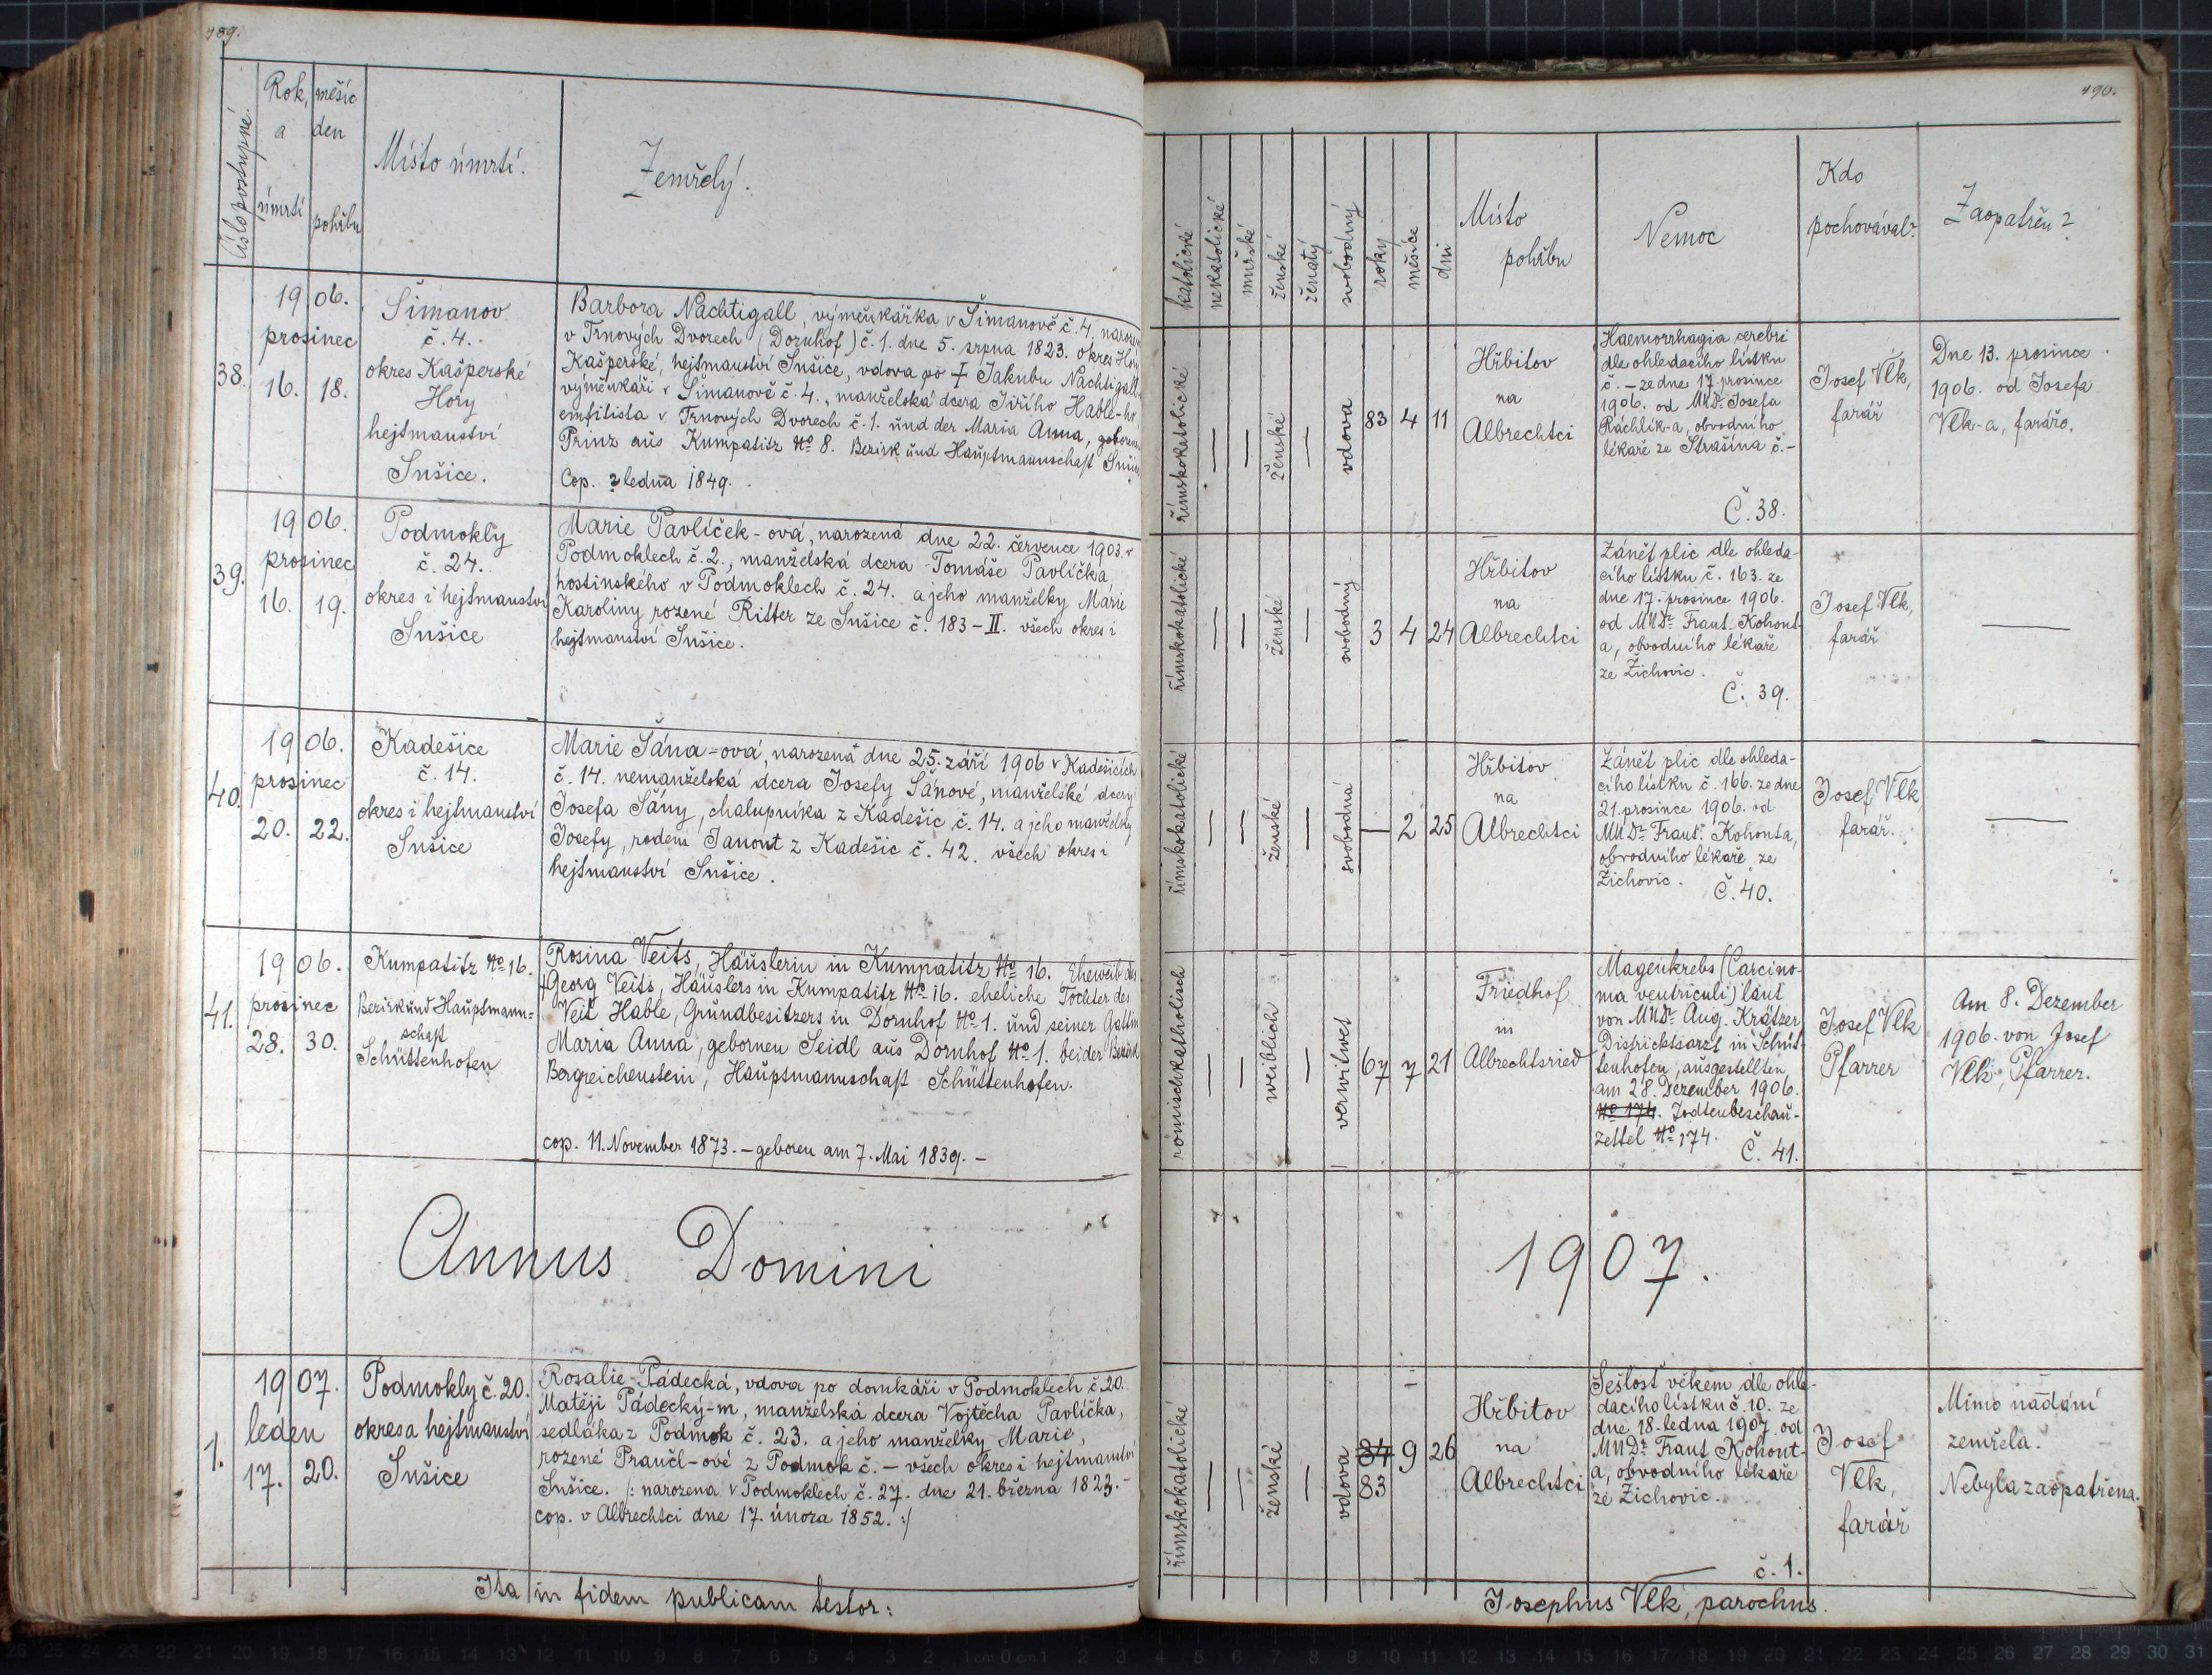 489.
Číslo postupné.
Rok, měsíc
a den
úmrtí
pohřbu
Místo úmrtí.
Zemřelý.
38.
1906.
prosinec
16. 18.
Šimanov
č. 4.
okres Kašperské
Hory
hejtmanství
Sušice.
Barbora Nachtigall, výměnkářka v Šimanově č. 4. narozen
v Trnových Dvorech (Dornhof) č. 1. dne 5. srpna 1823. okres Hory
Kašperské, hejtmanství Sušice, vdova po † Jakubu Nachtigall,
výměnkáři v Šimanově č. 4., manželská dcera Jiřího Hable-ho
emfitista v Trnových Dvorech č. 1. und der Maria Anna, geborene
Prinz aus Kumpatitz No 8. Bezirk und Hauptmannschaft Sušice
Cop. 2 ledna 1849.
39.
1906.
prosinec
16. 19.
Podmokly
č. 24.
okres i hejtmanství
Sušice
Marie Pavlíček-ová, narozená dne 22. července 1903. v
Podmoklech č. 2., manželská dcera Tomáše Pavlíčka,
hostinského v Podmoklech č. 24. a jeho manželky Marie
Karoliny rozené Ritter ze Sušice č. 183-II. všech okres i
hejtmanství Sušice.
40.
1906.
prosinec
20. 22.
Kadešice
č. 14.
okres i hejtmanství
Sušice
Marie Šána=ová, narozená dne 25. září 1906 v Kadešicích
č. 14. nemanželská dcera Josefy Šánové, manželské dcery
Josefa Šány, chalupníka z Kadešic č. 14. a jeho manželky
Josefy, rodem Janout z Kadešic č. 42. všech okres i
hejtmanství Sušice.
41.
1906.
prosinec
28. 30.
Kumpatitz No 16.
Bezirk und Hauptmann=
schaft
Schüttenhofen
Rosina Veits, Häuslerin in Kumpatitz No 16. Eheweib des
†Georg Veits, Häuslers in Kumpatitz No 16. eheliche Tochter des
Veit Hable, Grundbesitzers in Dornhof No 1. und seiner Gattin
Maria Anna, gebornen Seidl aus Dornhof No 1. beider Bezirk
Bergreichenstein, Hauptmannschaft Schüttenhofen.
cop. 11. November 1873. – geboren am 7. Mai 1839. –
Annus Domini
1.
1907.
leden
17. 20.
Podmokly č. 20.
okres a hejtmanství
Sušice
Rosalie Pádecká, vdova po domkáři v Podmoklech č. 20.
Matěji Pádecký-m, manželská dcera Vojtěcha Pavlíčka,
sedláka z Podmok č. 23. a jeho manželky Marie,
rozené Praučl-ové z Podmok č. – všech okres i hejtmanství
Sušice. /: narozena v Podmoklech č. 27. dne 21. března 1823. –
cop. v Albrechtci dne 17. února 1852. :/
Ita in fidem publicam testor:
490.
katolické
nekatolické
mužské
ženské
ženatý
svobodný
roky
měsíce
dni
Místo
pohřbu
Nemoc
Kdo
pochovával?
Zaopatřen?
římskokatolické
—
—
ženské
—
vdova
83 4 11
Hřbitov
na
Albrechtci
Haemorrhagia cerebri
dle ohledacího lístku
č. – ze dne 17. prosince
1906. od MUDr. Josefa
Ráchlík-a, obvodního
lékaře ze Strašína č. –
Č. 38.
Josef Vlk,
farář
Dne 13. prosince
1906. od Josefa
Vlk-a, faráře.
římskokatolické
—
—
ženské
—
svobodný
3 4 24
Hřbitov
na
Albrechtci
Zánět plic dle ohleda-
cího lístku č. 163. ze
dne 17. prosince 1906.
od MUDr. Frant. Kohout-
a, obvodního lékaře
ze Žichovic.
Č. 39.
Josef Vlk,
farář
—
římskokatolické
—
—
ženské
—
svobodná
— 2 25
Hřbitov
na
Albrechtci
Zánět plic dle ohleda-
cího lístku č. 166. ze dne
21. prosince 1906. od
MUDr. Frant. Kohouta,
obvodního lékaře ze
Žichovic.
Č. 40.
Josef Vlk
farář.
—
römischkatholisch
—
—
weiblich
—
verwitwet
67 7 21
Friedhof
in
Albrechtsried
Magenkrebs (Carcino-
ma ventriculi) laut
von MUDr. Aug. Krätzer
Districtsarzt in Schüt-
tenhofen, ausgestellten
am 28. Dezember 1906.
No 174. Todtenbeschau-
zettel No 174.
Č. 41.
Josef Vlk
Pfarrer
Am 8. Dezember
1906. von Josef
Vlk, Pfarrer.
1907.
římskokatolické
—
—
ženské
—
vdova
84 9 26
83
Hřbitov
na
Albrechtci
Sešlost věkem dle ohle-
dacího lístku č. 10. ze
dne 18. ledna 1907. od
MUDr. Frant Kohout-
a, obvodního lékaře
ze Žichovic.
č. 1.
Josef
Vlk,
farář
Mimo nadání
zemřela.
Nebyla zaopatřena.
Josephus Vlk, parochus.